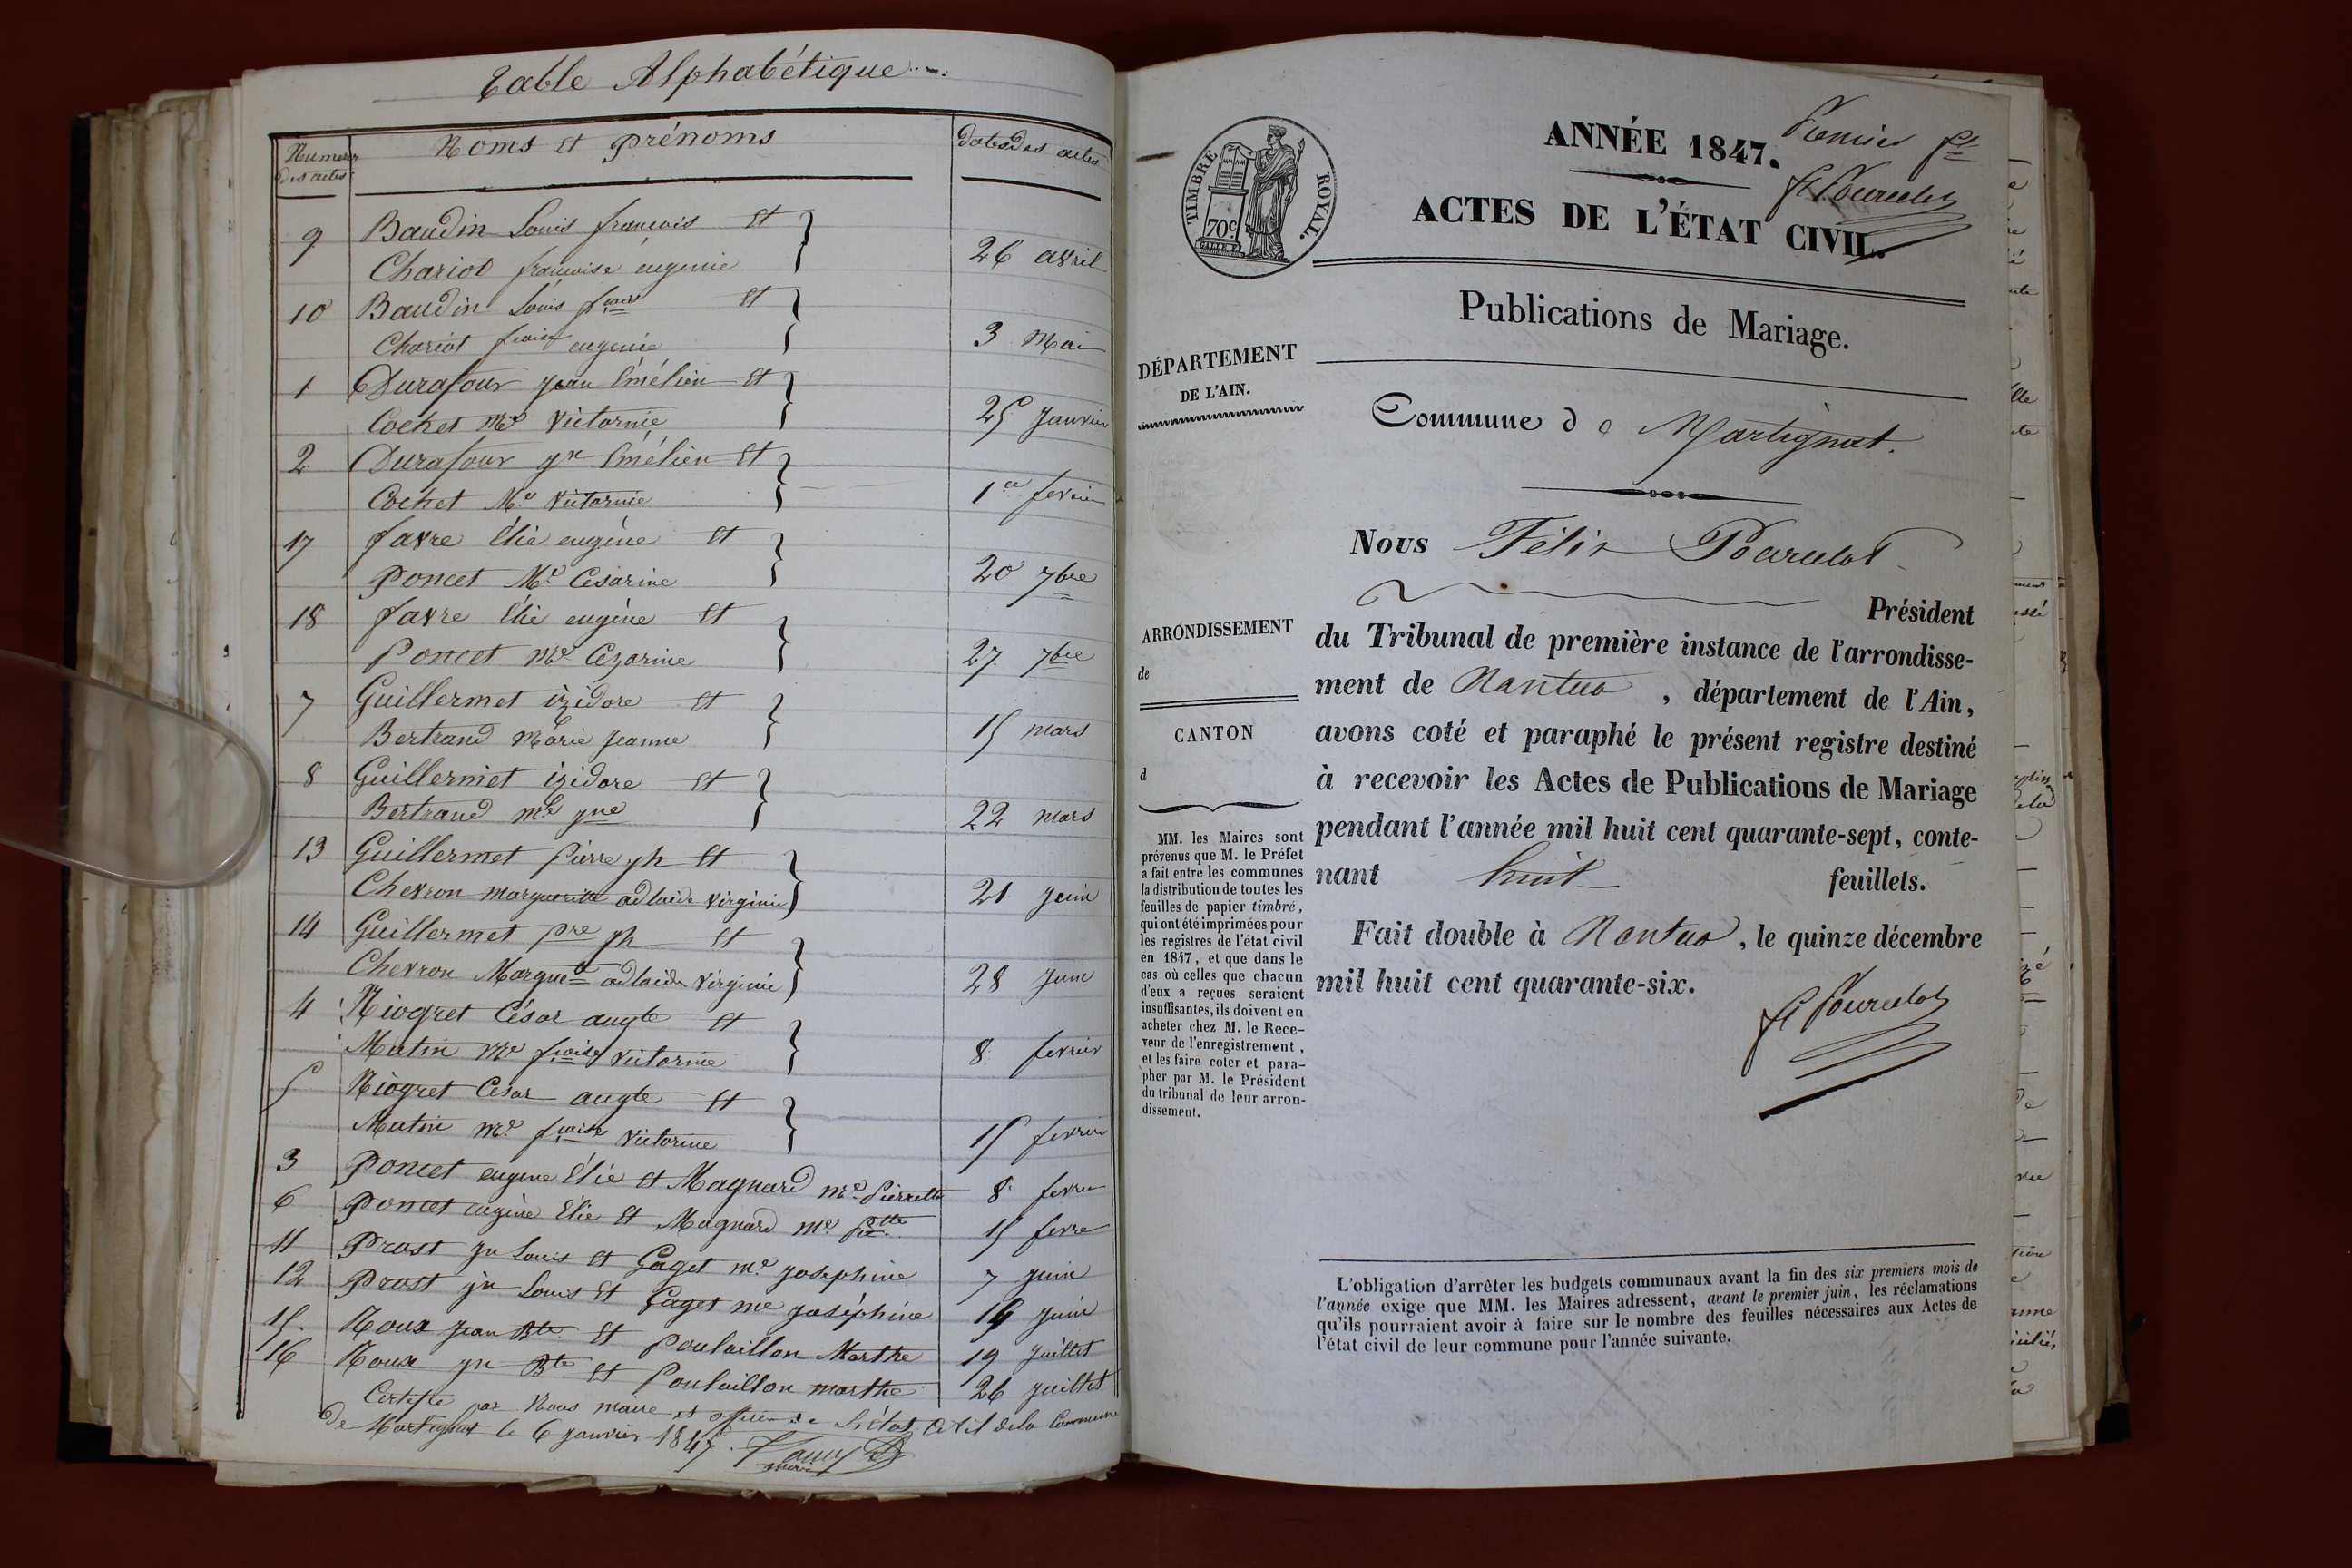 Table Alphabétique
Numeros des actes
Noms et prénoms
dates des actes
9 Baudin Louis françois et
Chariot françoise eugenie 26 avril
10 Baudin Louis fcois et
Chariot fcoise eugenie 3 Mai
1 Durafour jean Émélien et
Cochet Me Victornie 25 Janvier
2 Durafour jn Émélien et
Cochet Me Victornie 1er fevrier
17 favre Élie eugène et
Poncet Me Césarine 20 7bre
18 favre Élie eugène et
Poncet Me Cezarine 27 7bre
7 Guillermet izidore et
Bertrand Marie jeanne 15 mars
8 Guillermet izidore et
Bertrand mie jne 22 mars
13 Guillermet Pierre jh et
Chevron marguerite adlaide virginie 21 juin
14 Guillermet pre jh et
Chevron Marguete adlaide virginie 28 juin
4 Niogret César augte et
Mutin Me fcoise victorine 8 fevrier
5 Niogret César augte et
Mutin Me fcoise victorine 15 fevrier
3 Poncet eugene Élie et Magnard me Pierrette 8 fevrier
6 Poncet eugène Élie et Magnard me Pette 15 fevre
11 Prost jn Louis et Gaget me josephine 7 juin
12 Prost jn Louis et Gaget me joséphine 14 juin
15. Roux jean Bte et Poulaillon Marthe 19 juillet
16 Roux jn Bte et Poulaillon marthe 26 juillet
Certifié par Nous maire et officier de l'état Civil de la Commune
de Martignat le 6 janvier 1847.
maire
TIMBRE ROYAL.
70c
ANNÉE 1847.
Premier ft
ft Pourcelot
ACTES DE L'ÉTAT CIVIL.
Publications de Mariage.
DÉPARTEMENT
DE L'AIN.
Commune de Martignat.
Nous Félix Pourcelot
Président
ARRONDISSEMENT
de
CANTON
d
du Tribunal de première instance de l'arrondisse-
ment de Nantua, département de l'Ain,
avons coté et paraphé le présent registre destiné
à recevoir les Actes de Publications de Mariage
pendant l'année mil huit cent quarante-sept, conte-
nant huit feuillets.
Fait double à Nantua, le quinze décembre
mil huit cent quarante-six.
ft Pourcelot
MM. les Maires sont
prévenus que M. le Préfet
a fait entre les communes
la distribution de toutes les
feuilles de papier timbré,
qui ont été imprimées pour
les registres de l'état civil
en 1847, et que dans le
cas où celles que chacun
d'eux a reçues seraient
insuffisantes, ils doivent en
acheter chez M. le Rece-
veur de l'enregistrement,
et les faire coter et para-
pher par M. le Président
du tribunal de leur arron-
dissement.
L'obligation d'arrêter les budgets communaux avant la fin des six premiers mois de
l'année exige que MM. les Maires adressent, avant le premier juin, les réclamations
qu'ils pourraient avoir à faire sur le nombre des feuilles nécessaires aux Actes de
l'état civil de leur commune pour l'année suivante.